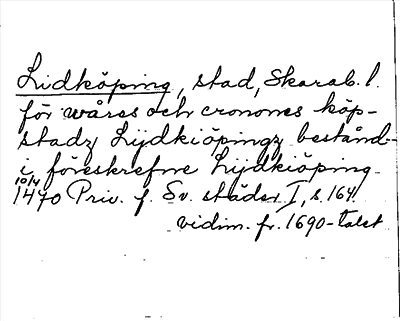 Lidköping, stad, Skarab. l.
för wåras och cronones köp-
stadz Lijdkiöpingz bestånd -
i föreskrefne Lijdkiöping
10/4
1470 Priv. f. Sv. städer I, s. 164.
vidim. fr. 1690-talet